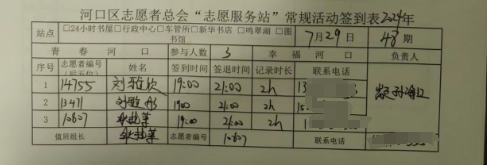 河口区志愿者总会“志愿服务站”常规活动签到表2024年
站点 □24小时书屋□行政中心□车管所□新华书店 □鸣翠湖 □图书馆 7月29日 48期
青春河口 参与人数 3 幸福河口 负责人
序号 志愿者编号 姓名 签到时间 签退时间 记录时长 联系电话
1 14755 刘雅欣 19:00 21:00 2h 13
2 13471 刘 彤 19:00 21:00 2h 15
3 10607 19:00 21:00 2h
值班组长 志愿者编号 10607 联系电话